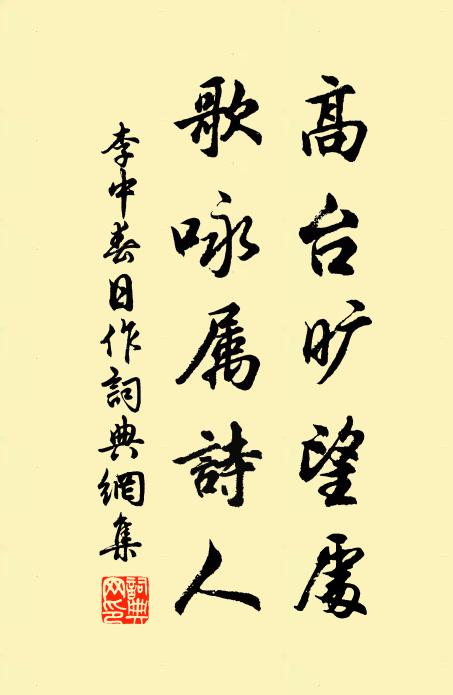 高台旷望處
歌咏属詩人
李中春日作詞典網集
詞典
网印